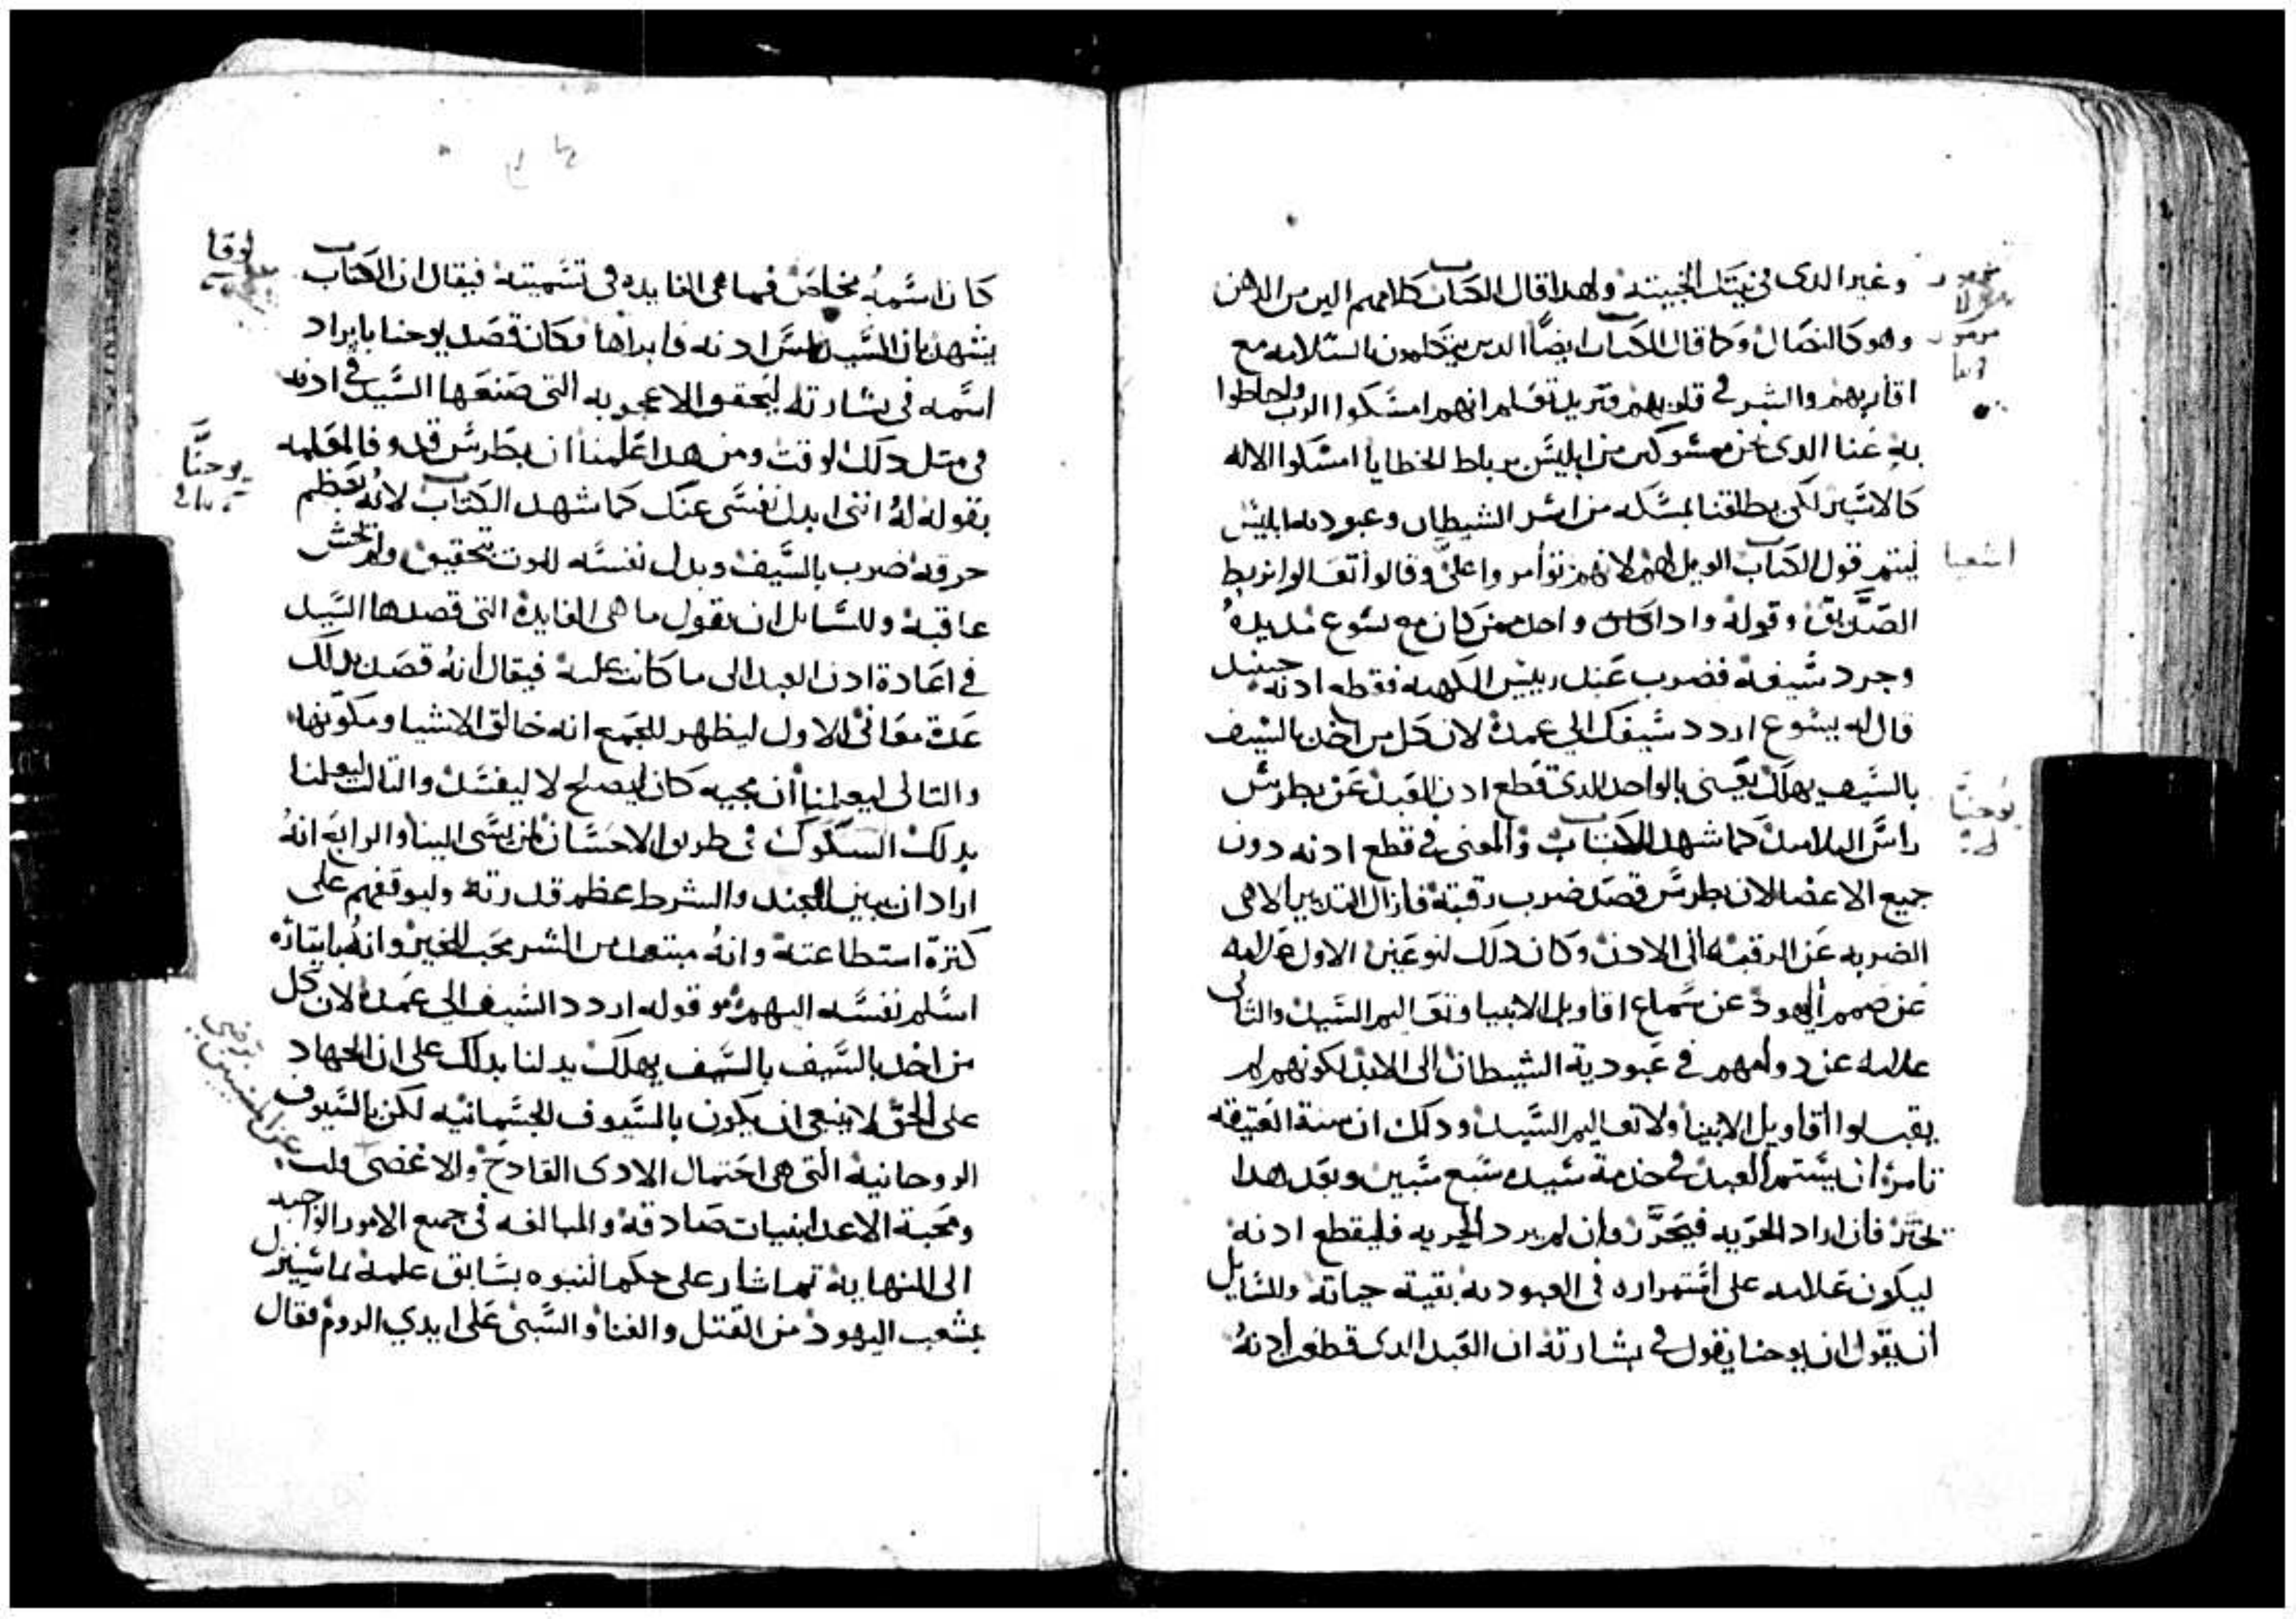 وغير الدى فى نيتك الخبيته ولهدا قال الكتاب كلامهم الين من الدهن
وهو كالنصال وكما قال الكتاب ايضًا الدين يتكلمون بالسلامه مع
اقاربهم والشر في قلوبهم انهم امسكوا الرب واحاطوا
به عنا الدى نحن من ابليس برباط الخطايا امسكوا الاله
كالاسير لكى يطلقنا بمسكه من اسر الشيطان وعبوديه ابليس
ليتم قول الكتاب الويل لهم لانهم توأمروا على وقالوا تعالوا نربط
الصديق وقوله وادا كان واحد ممن كان مع يسوع مد يده
وجرد سيفه فضرب عبد رييس الكهنه فقطع ادنه حينيد
قال له يسوع اردد سيفك الي غمده لان كل من اخد بالسيف
بالسيف يهلك يعنى بالواحد الدى قطع ادن العبد عن بطرس
راس التلاميد كما شهد الكتاب والمعنى في قطع ادنه دون
جميع الاعضا لان بطرس قصد ضرب رقبته فازال التدبير الاهى
الضربه عن الرقبه الى الادن وكان دلك لنوعين الاول علامه
عن صمم اليهود عن سماع اقاويل الانبيا وتعاليم السيد والتانى
علامه عن دوامهم في عبودية الشيطان الى الابد لكونهم لم
يقبلوا اقاويل الانبيا ولا تعاليم السيد ودلك ان سنة العتيقه
تامر ان يستمر العبد في خدمة سيده سبع سنين وبعد هدا
يختر فان اراد الحريه فيتحرر وان لم يرد الحريه فليقطع ادنه
ليكون علامه على استمراره فى العبوديه بقية حياته وللسايل
ان يقول ان يوحنا يقول في بشارته ان العبد الدى قطعت ادنه
اشعيا
يوحنا
كان اسمه فما هى الفايده فى تسميته فيقال ان الكتاب
يشهد بان السيد لمس ادنه فابراها وكان قصد يوحنا بايراد
اسمه فى بشارته ليتحقق الاعجوبه التى صنعها السيد في ادنه
فى متل دلك الوقت ومن هدا علمنا ان بطرس قد وفا لمعلمه
بقوله له اننى ابدل نفسى عنك كما شهد الكتاب لانه بعظم
حرقه ضرب بالسيف وبدل نفسه للموت بتحقيق ولم يخش
عاقبه وللسايل ان يقول ما هى الفايده التى قصدها السيد
في اعادة ادن العبد الى ما كانت عليه فيقال انه قصد بدلك
عدة معانى الاول ليظهر للجمع انه خالق الاشيا ومكونها
والتانى ليعلمنا ان مجيه كان ليصلح لا ليفسد والتالت ليعلمنا
بدلك السكوك فى طريق الاحسان لمن يسى الينا والرابع انه
اراد ان يبين للجند والشرط عظم قدرته وليوقفهم على
كترة استطاعته وانه مبتعد من الشر محب للخير وانه بايتاره
اسلم نفسه اليهم وقوله اردد السيف الي غمده لان كل
من اخد بالسيف بالسيف يهلك يدلنا بدلك على ان الجهاد
على الحق لا ينبغى ان يكون بالسيوف الجسمانيه لكن بالسيوف
الروحانيه التى هى احتمال الادى القادح والاغضى
ومحبة الاعدا بنيات صادقه والمبالغه فى جميع الامور الواجبه
الى النهايه تم اشار على حكم النبوه بسابق علمه بما سينزل
بشعب اليهود من القتل والفنا والسبى على ايدي الروم فقال
لوقا
يوحنا